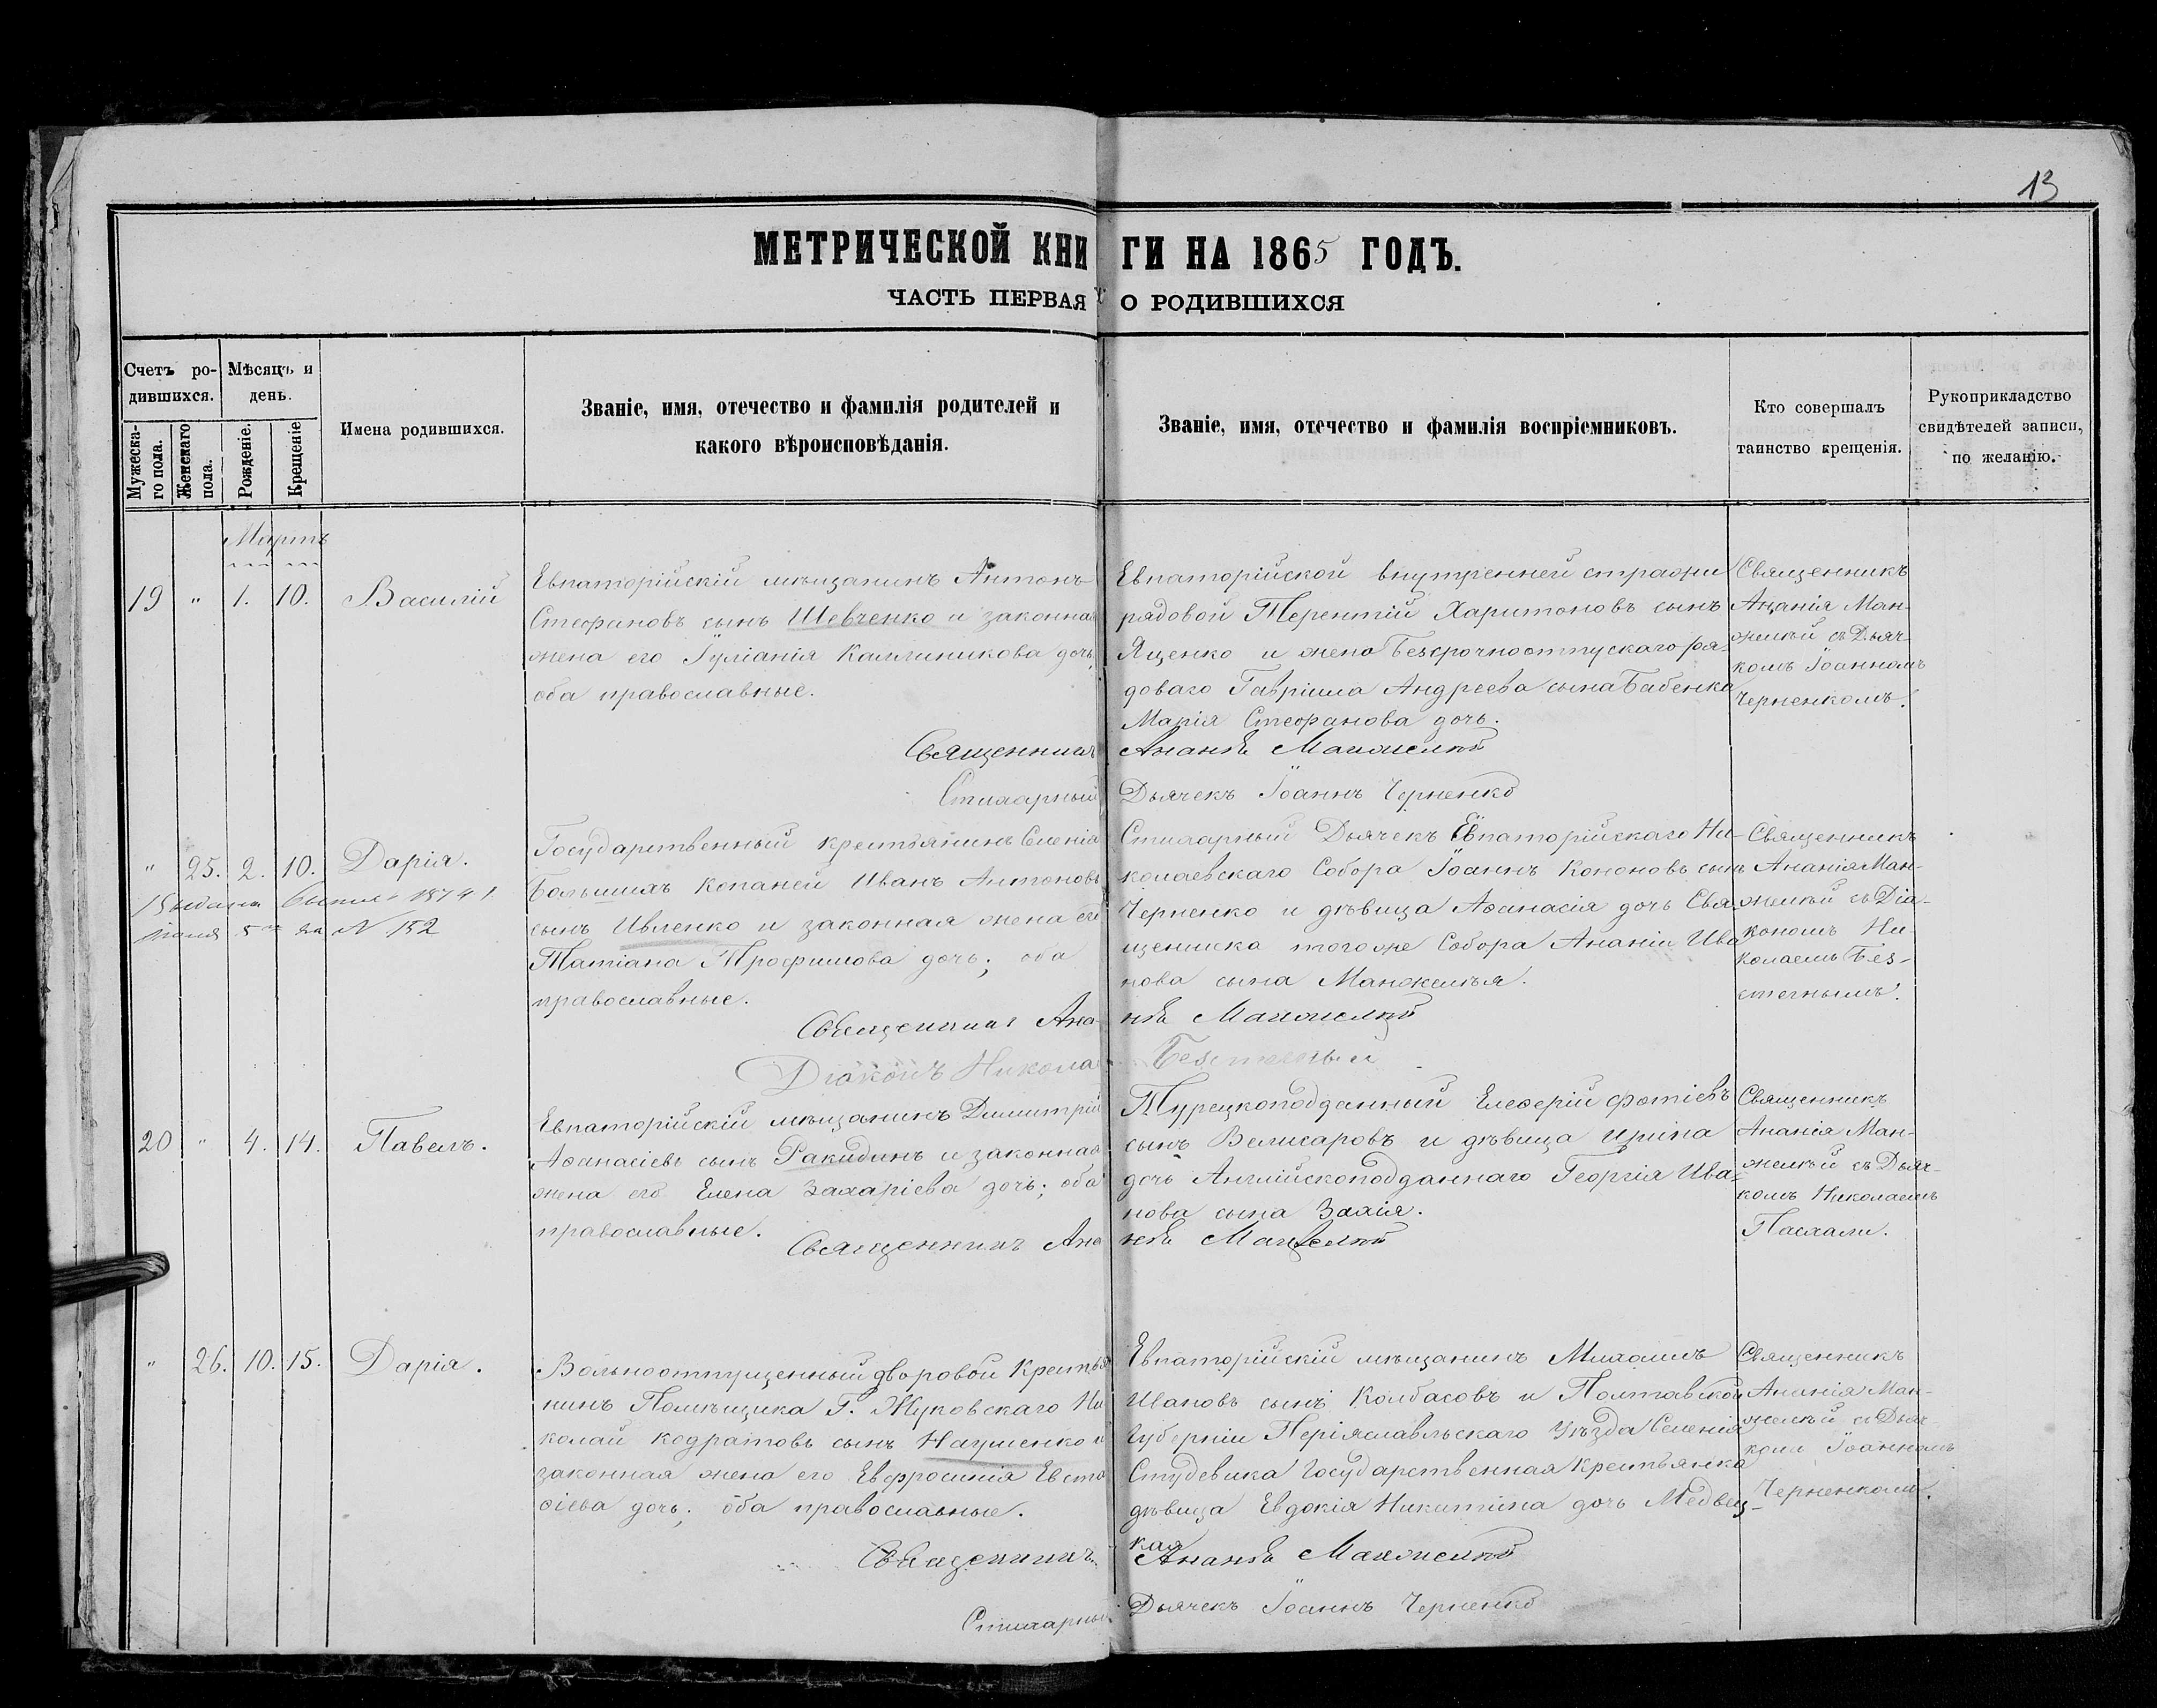 13
МЕТРИЧЕСКОЙ КНИГИ НА 1865 ГОДЪ.
ЧАСТЬ ПЕРВАЯ О РОДИВШИХСЯ
Счетъ ро-
дившихся.
Мѣсяцъ и
день.
Мужеска-
го пола.
Женскаго
пола.
Рожденіе.
Крещеніе
Имена родившихся.
Званіе, имя, отечество и фамилія родителей и
какого вѣроисповѣданія.
Званіе, имя, отечество и фамилія воспріемниковъ.
Кто совершалъ
таинство крещенія.
Рукоприкладство
свидѣтелей записи,
по желанію.
Мартъ
19 " 1. 10. Василій
Евпаторійскій мѣщанинъ Антонъ
Стефановъ сынъ Шевченко и законная
жена его Іуліанія Каллиникова дочь,
оба православные.
Евпаторійской внутренней стражи
рядовой Терентій Харитоновъ сынъ
Ященко и жена Безсрочноотпускаго ря-
доваго Гавріила Андреева сына Бабенка
Марія Стефанова дочь.
Священникъ
Ананія Ман-
желѣй съ Дьяч-
комъ Іоанномъ
Черненкомъ.
Священникъ Ананія Манжелѣй
Стихарный Дьячекъ Іоаннъ Черненко
" 25. 2. 10. Дарія.
1874
5 за N 152
Государственный крестьянинъ Селенія
Большихъ Копаней Иванъ Антоновъ
сынъ Ивленко и законная жена его
Татіана Трофимова дочь; оба
православные.
Стихарный Дьячекъ Евпаторійскаго Ни-
колаевскаго Собора Іоаннъ Кононовъ сынъ
Черненко и дѣвица Аѳанасія дочь Свя-
щенника тогоже Собора Ананіи Ива-
нова сына Манжелѣя.
Священникъ
Ананія Ман-
желѣй съ Діа-
кономъ Ни-
колаемъ Без-
стечнымъ.
Священникъ Ананія Манжелѣй
Діаконъ Николай Безстечный
20 " 4. 14. Павелъ.
Евпаторійскій мѣщанинъ Димитрій
Аѳанасіевъ сынъ Ракидинъ и законная
жена его Елена Захаріева дочь; оба
православные.
Турецкоподданный Елеѳерій Фотіевъ
сынъ Велисаровъ и дѣвица Ирина
дочь Англійскоподданнаго Георгія Ива-
нова сына Захія.
Священникъ
Ананія Ман-
желѣй съ Дьяч-
комъ Николаемъ
Пасхали.
Священникъ Ананія Манжелѣй
" 26. 10. 15. Дарія.
Вольноотпущенный дворовой Крестья-
нинъ Помѣщика Г. Жуковскаго Ни-
колай Кодратовъ сынъ Науменко и
законная жена его Евфросинія Евста-
ѳіева дочь; оба православные.
Евпаторійскій мѣщанинъ Михаилъ
Ивановъ сынъ Колбасовъ и Полтавской
Губерніи Періяславльскаго Уѣзда Селенія
Студевика Государственная Крестьянка
дѣвица Евдокія Никитина дочь Медвец-
кая
Священникъ
Ананія Ман-
желѣй съ Дьяч-
комъ Іоанномъ
Черненкомъ.
Священникъ Ананія Манжелѣй
Стихарный Дьячекъ Іоаннъ Черненко